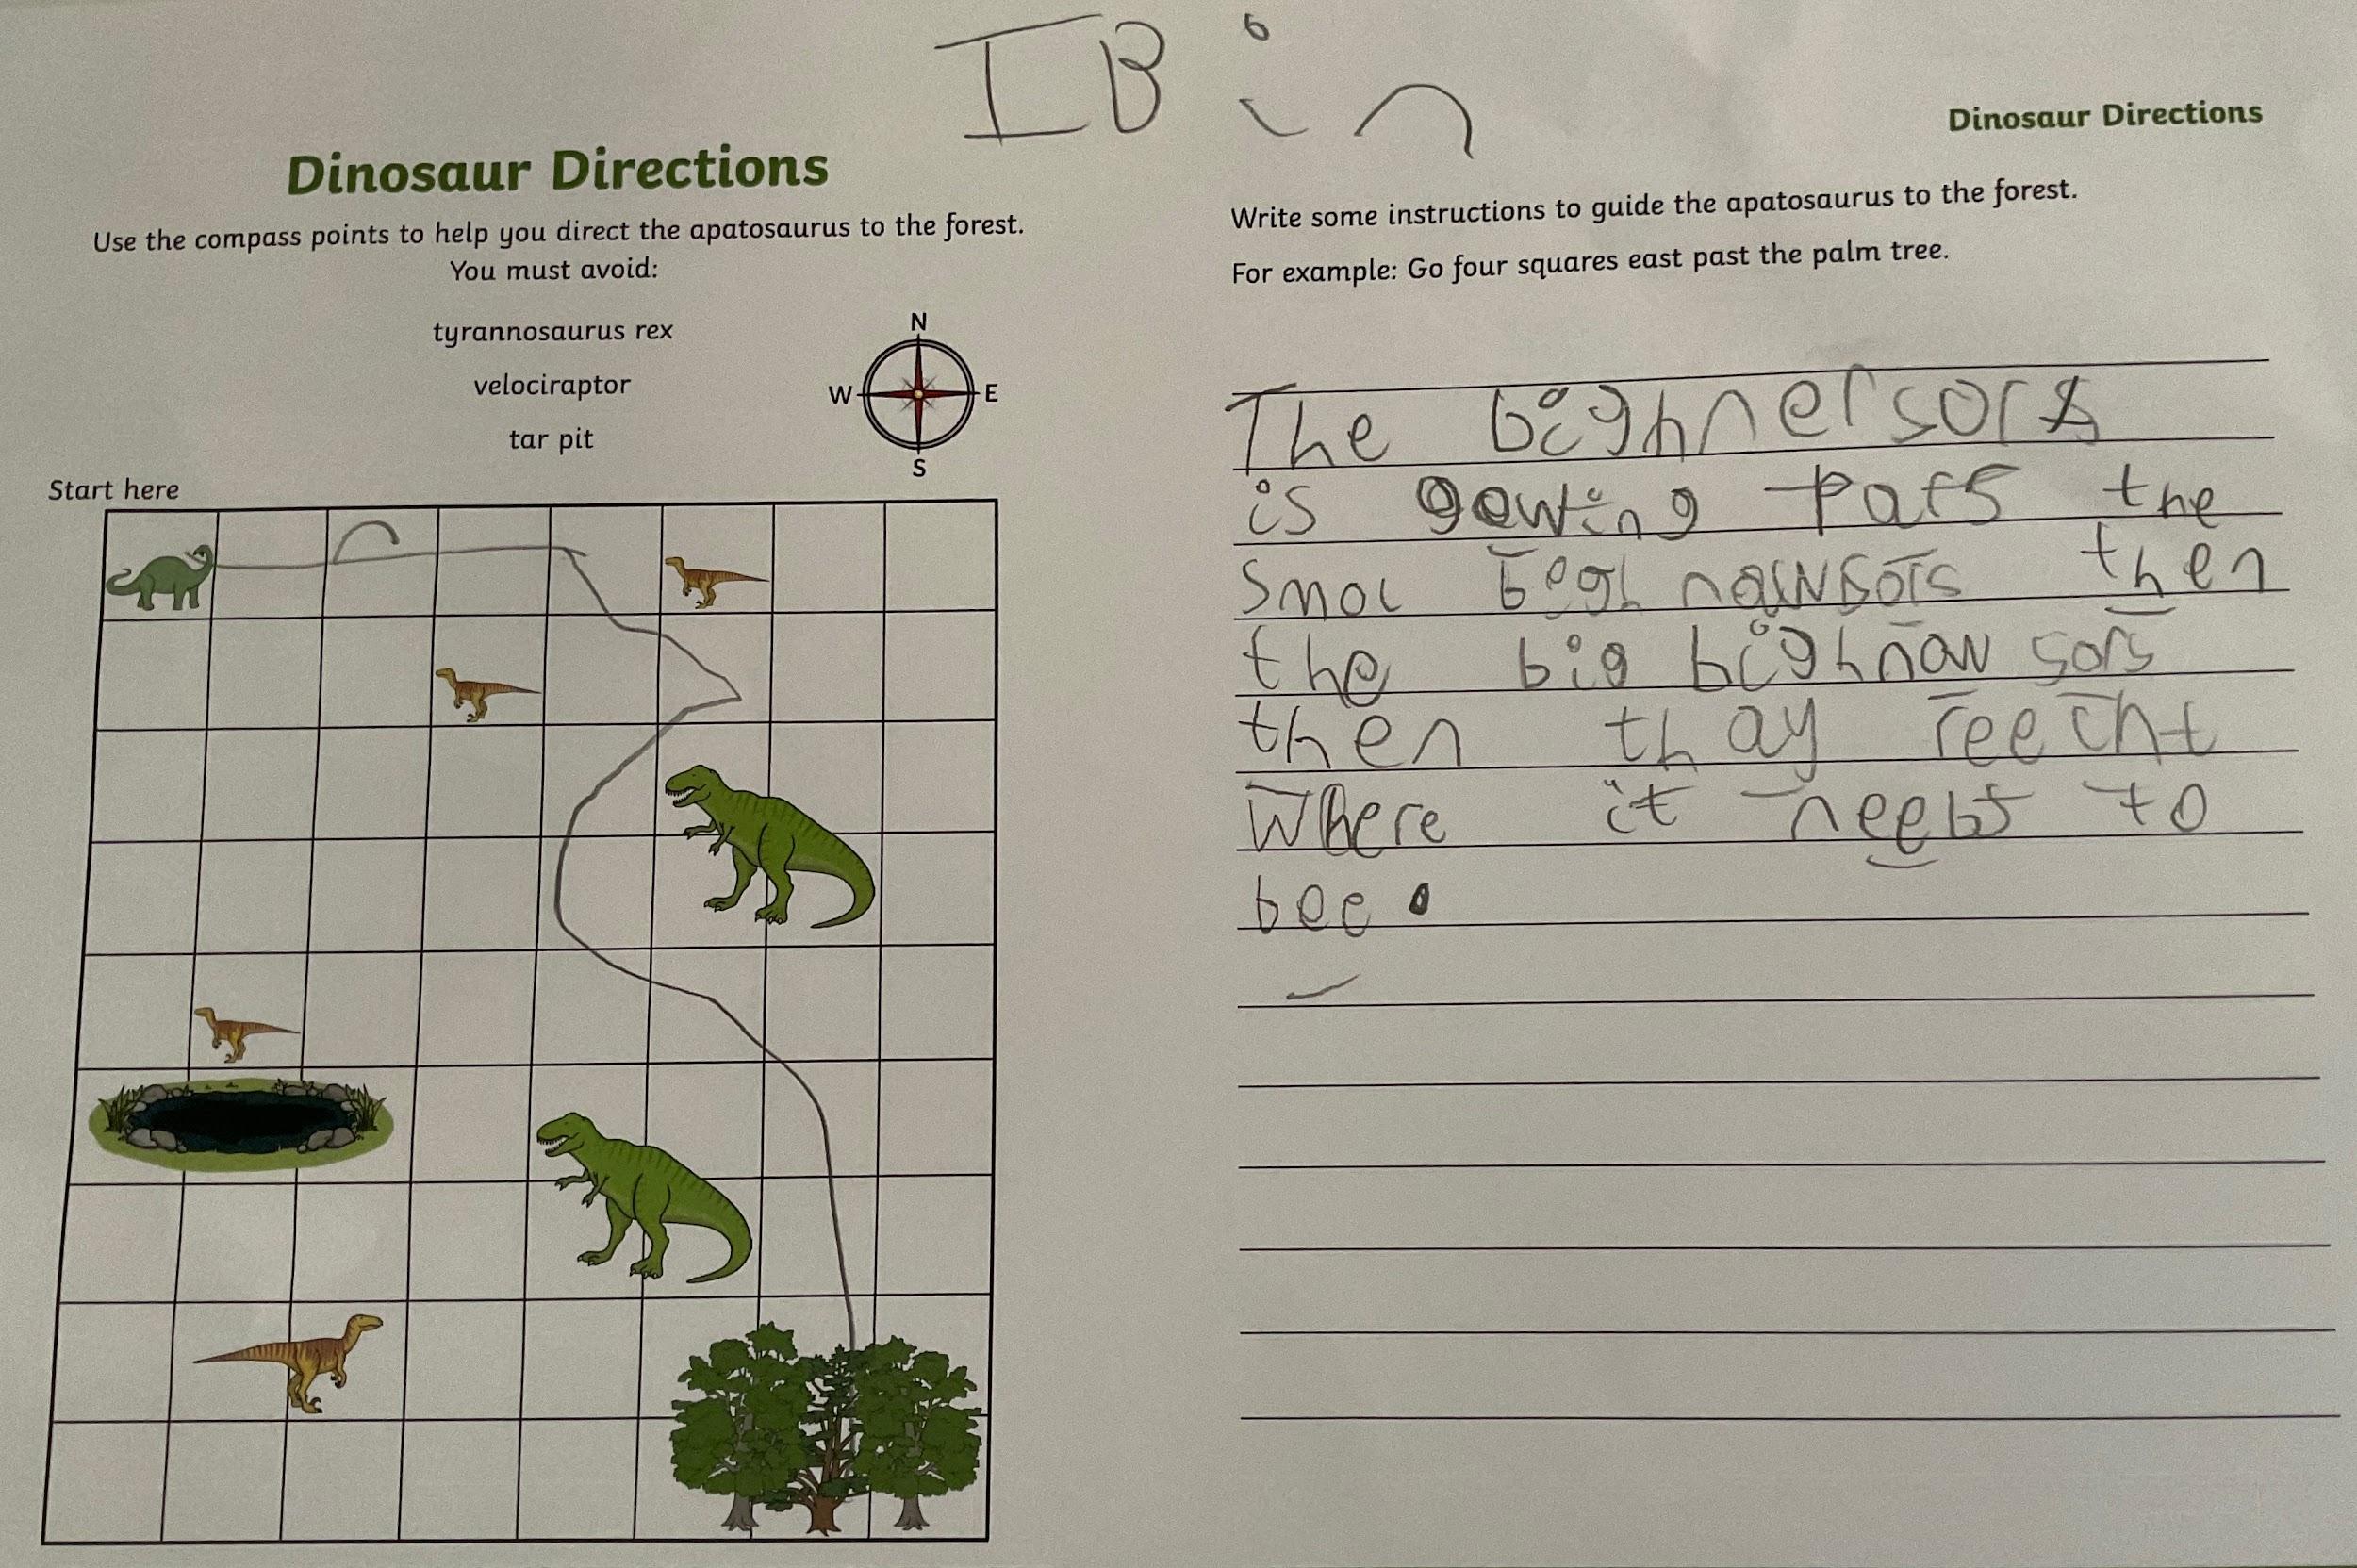 IB in
Dinosaur Directions
Use the compass points to help you direct the apatosaurus to the forest.
You must avoid:
tyrannosaurus rex
velociraptor
tar pit
N
W E
S
Start here
Dinosaur Directions
Write some instructions to guide the apatosaurus to the forest.
For example: Go four squares east past the palm tree.
The bighnersors
is gowing pars the
smol begh nawsors then
the big bighnaw sors
then thay reecht
Where it needs to
bee.